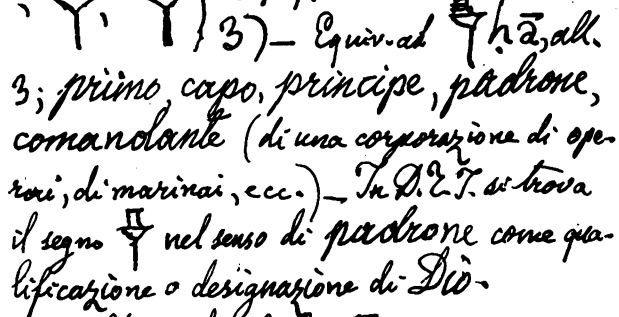 3) — Equiv. ad ḥā, all.
3; primo, capo, principe, padrone,
comandante (di una corporazione di ope-
rai, di marinai, ecc.) — In D.Z.T. si trova
il segno nel senso di padrone come qua-
lificazione o designazione di Dio.